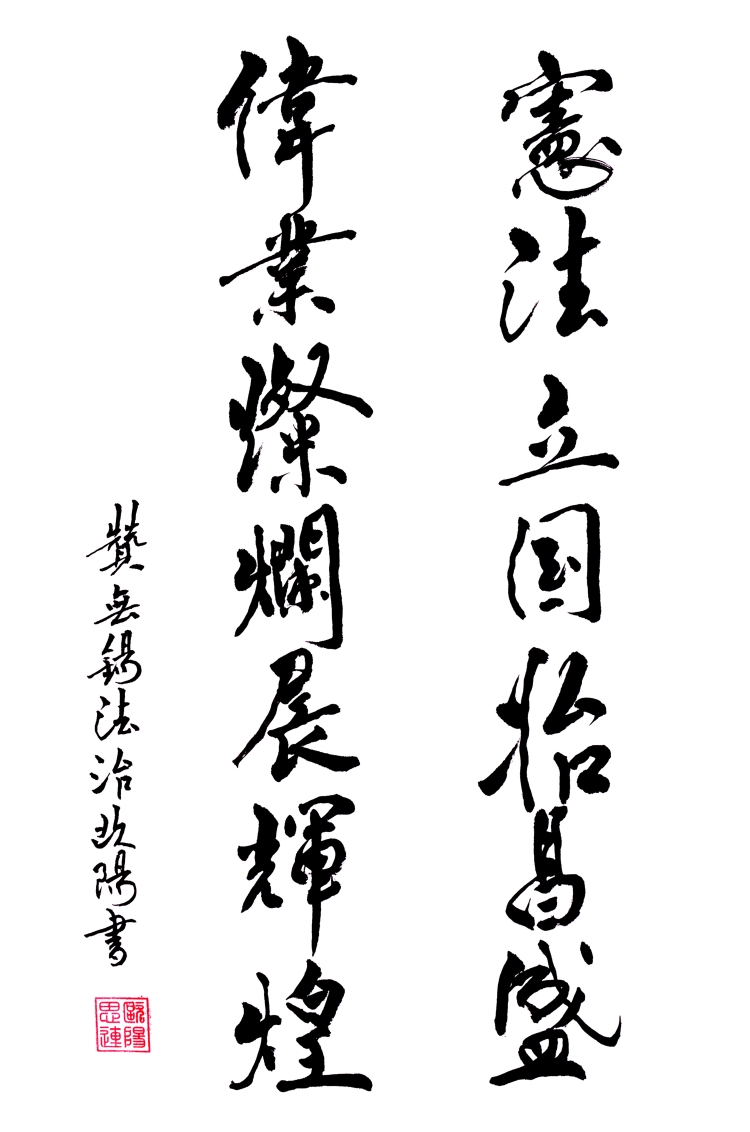 憲法立国昌盛
偉業燦爛晨輝煌
贊無錫法治欧陽書
歐陽思連